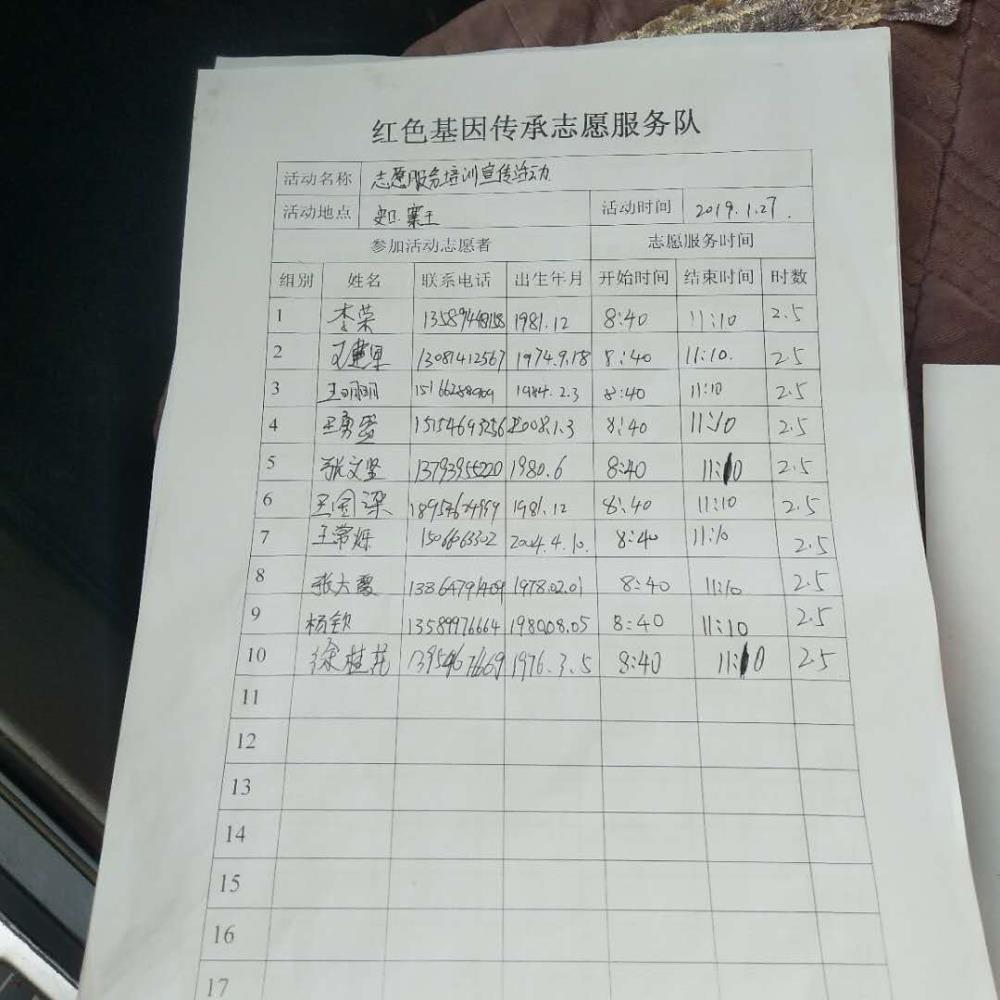 红色基因传承志愿服务队
活动名称 志愿服务培训宣传活动
活动地点 活动时间 2019.1.27.
参加活动志愿者 志愿服务时间
组别 姓名 联系电话 出生年月 开始时间 结束时间 时数
1 李荣 1981.12 8:40 11:10 2.5
2 13081412567 1974.9.18 8:40 11:10. 2.5
3 王明朋 1984.2.3 8:40 11:10 2.5
4 15154693256 2008.1.3 8:40 11:10 2.5
5 张文坚 13793955220 1980.6 8:40 11:10 2.5
6 王金梁 1981.12 8:40 11:10 2.5
7 王常烁 2004.4.10. 8:40 11:10 2.5
8 张大霞 13864791409 1978.02.01 8:40 11:10 2.5
9 杨钦 13589976664 1980.08.05 8:40 11:10 2.5
10 徐桂花 13954676669 1976.3.5 8:40 11:10 2.5
11
12
13
14
15
16
17